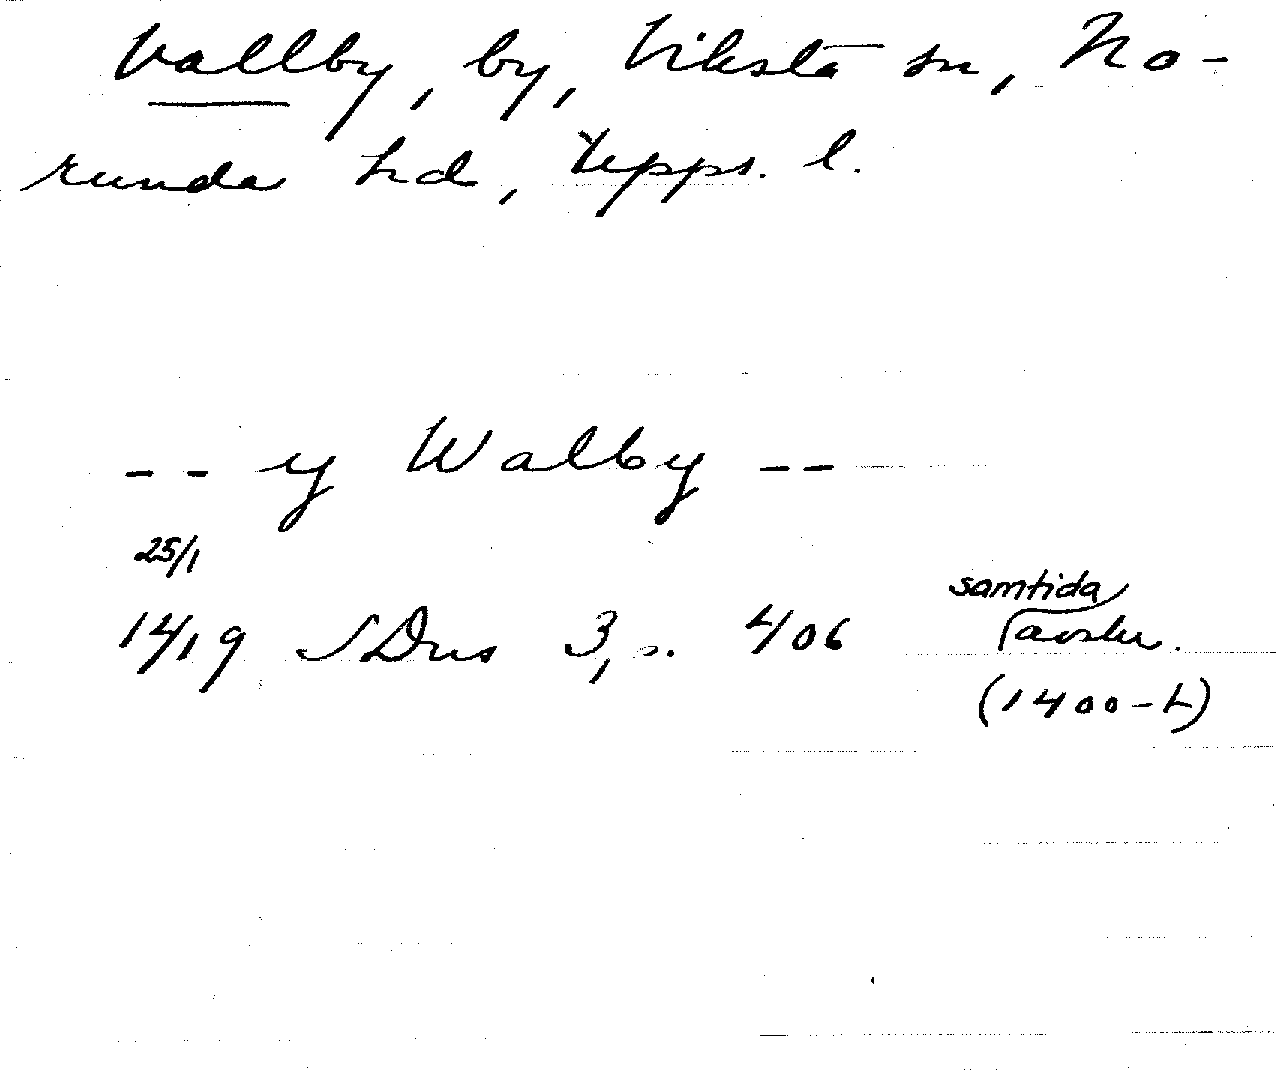 Vallby, by, Viksta sn, No-
runda hd, Upps. l.
-- y Walby --
25/1
1419 SDns 3, s. 406 samtida avskr.
(1400-t)